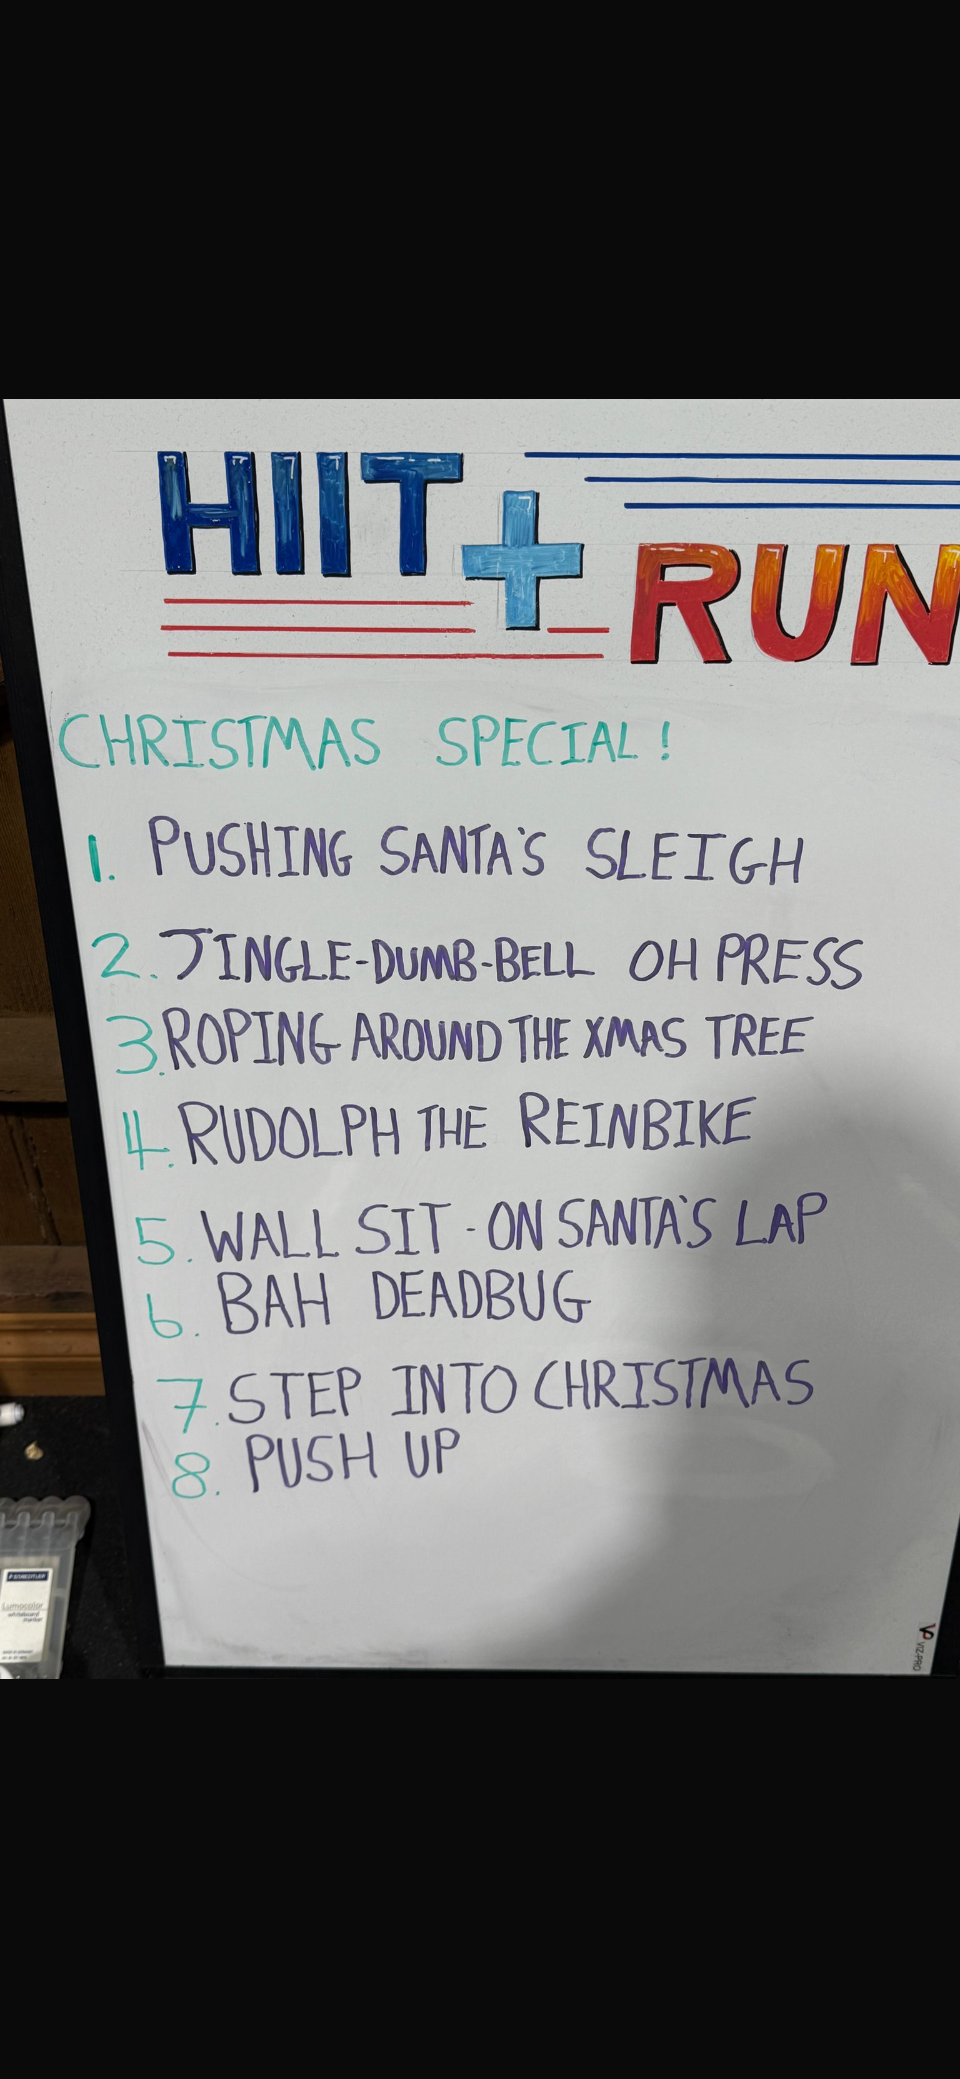 HIIT + RUN
CHRISTMAS SPECIAL!
1. PUSHING SANTA'S SLEIGH
2. JINGLE-DUMB-BELL OH PRESS
3. ROPING AROUND THE XMAS TREE
4. RUDOLPH THE REINBIKE
5. WALL SIT - ON SANTA'S LAP
6. BAH DEADBUG
7. STEP INTO CHRISTMAS
8. PUSH UP
STAEDTLER
Lumocolor
whiteboard
marker
VIZ-PRO